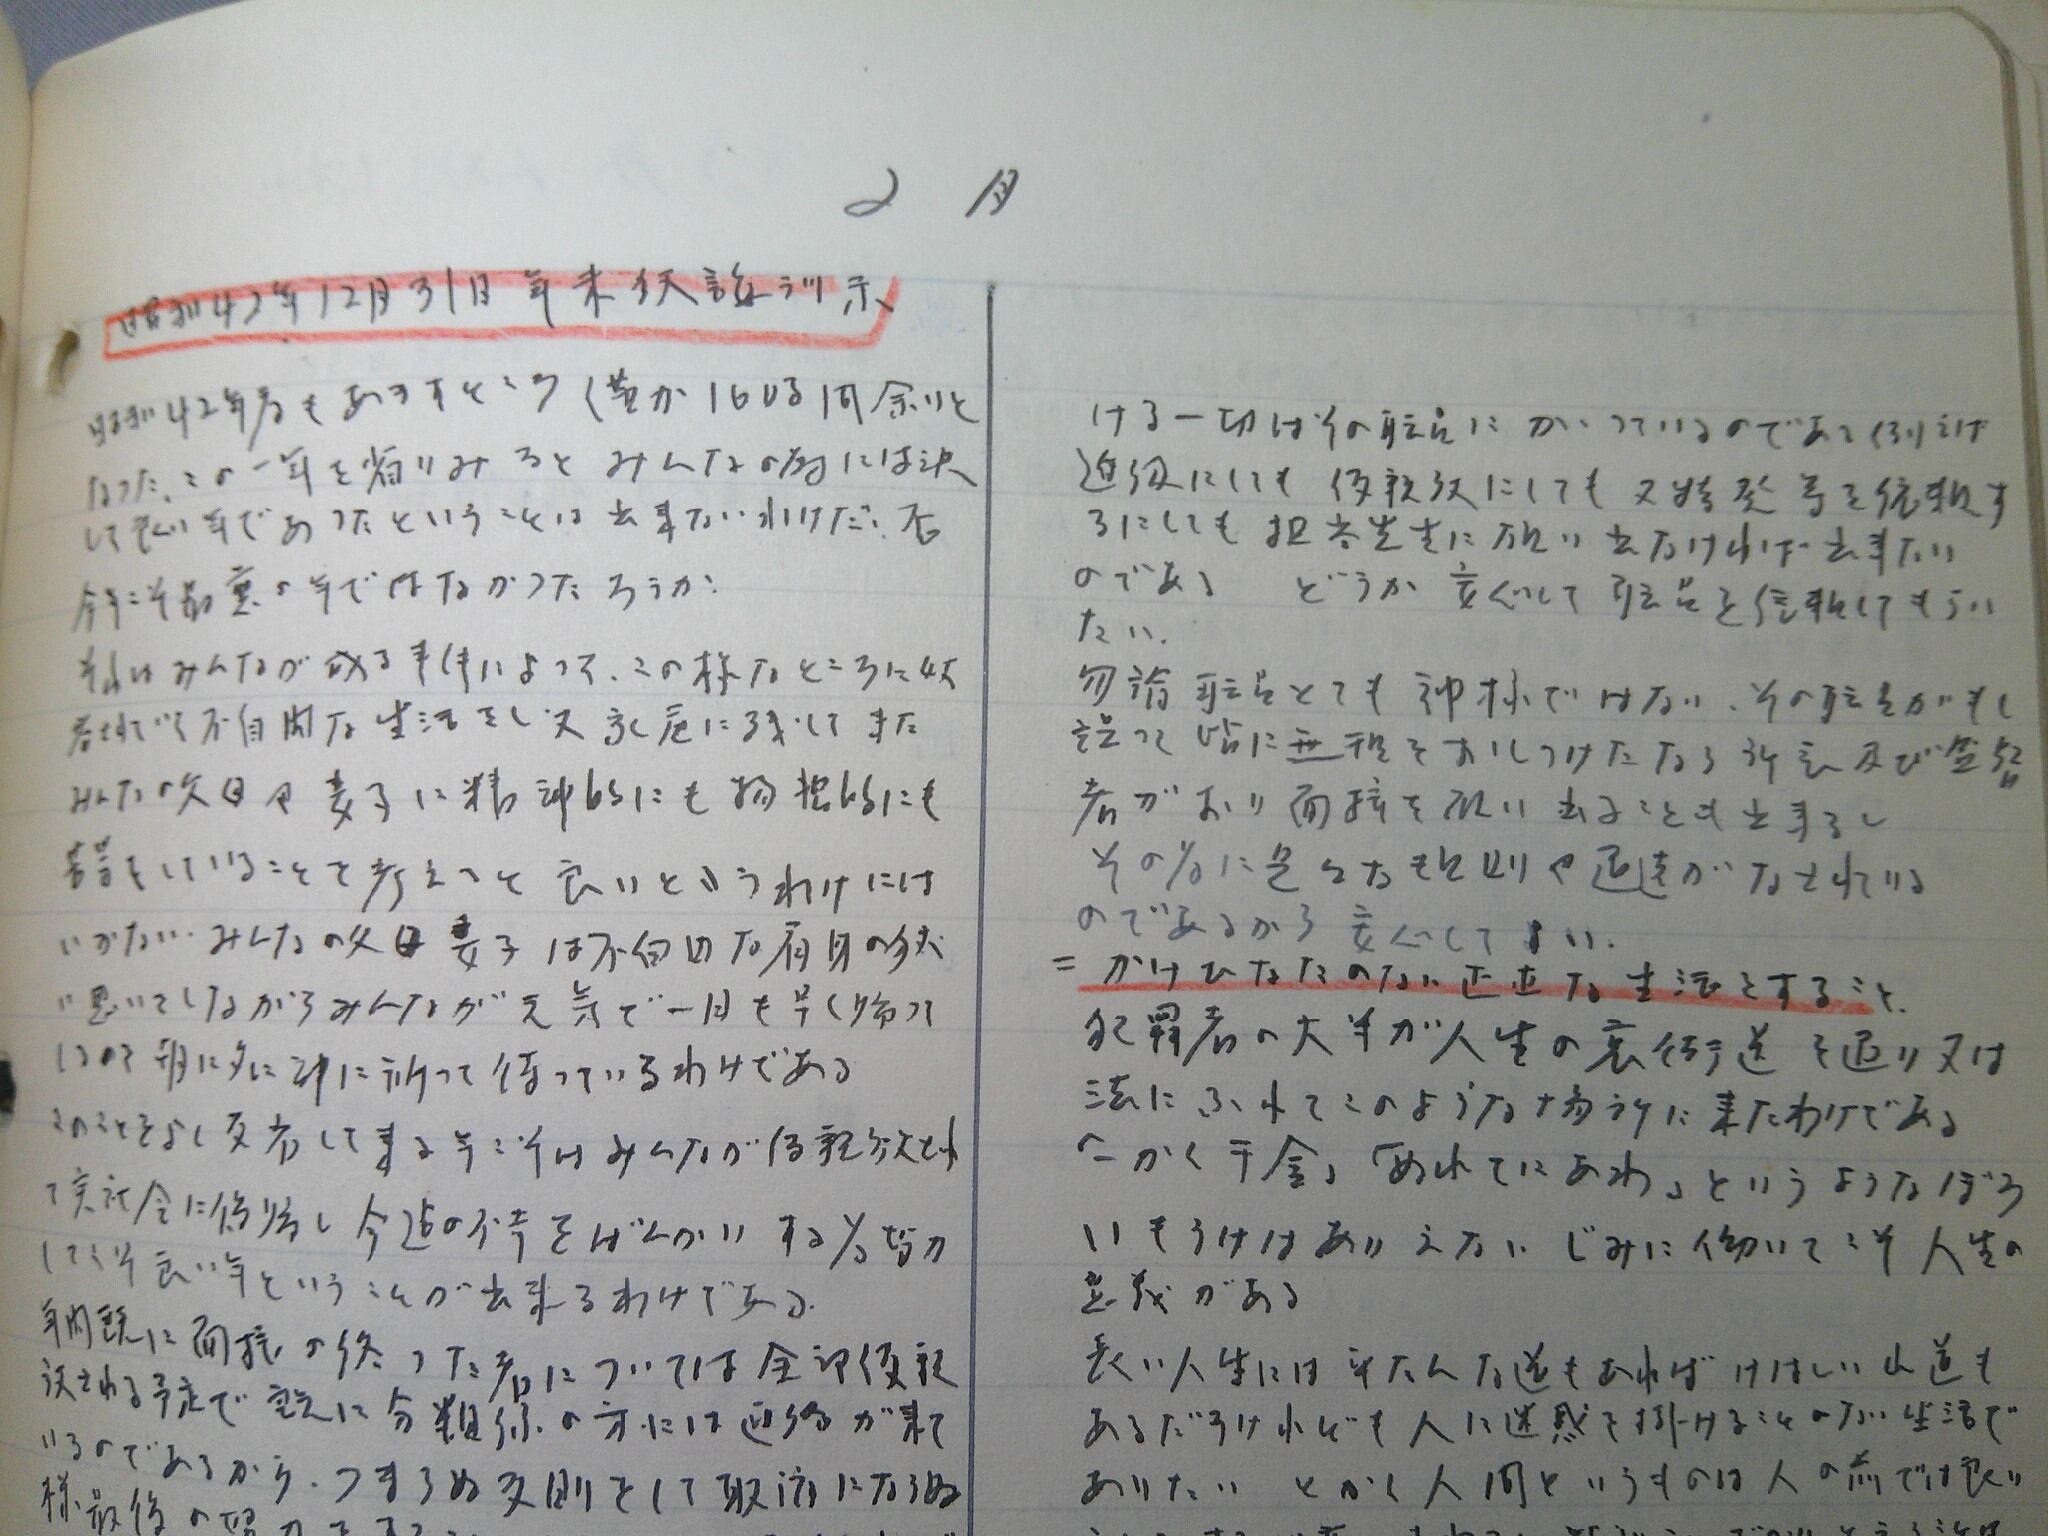 2月
昭和42年12月31日年末放談訓示
昭和42年度もあますところ僅か16時間余りと
なった、この一年を省りみるとみんなの為には決
して良い年であったということは出来ないわけだ、否
今年こそ最悪の年ではなかったろうか
それはみんなが或る事件によって、このようなところに収
容されていて不自由な生活をし又家庭に残して来た
みんなの父母や妻子に精神的にも物理的にも
苦労をしていることを考えると良いというわけには
いかない みんなの父母妻子は不自由な肩身の狭
い思いをしながらみんなが元気で一日も早く帰って
くるのを朝に夕に神に祈って待っているわけである
このことをよく反省して来る年こそはみんなが仮釈放され
て実社会に復帰し今迄の不幸をばんかいする為努力
してこそ良い年ということが出来るわけである
年内既に面接の終った者については全部仮釈
放される予定で既に分類係の方には連絡が来て
いるのであるから、つまらぬ反則をして取消にならぬ
様最後の努力を
ける一切はその職員にかかっているのである 例えば
進級にしても仮釈放にしても又 等を依頼す
るにしても担当先生に願い出なければ出来ない
のである どうか安心して職員を信頼してもらい
たい.
勿論職員とても神様ではない、その職員がもし
誤って皆に無理をおしつけたなら 及び
者がおり面接を願い出ることも出来るし
その為に色々な規則や通達がなされている
のであるから安心してよい.
= かけひなたのない正直な生活をすること.
犯罪者の大半が人生の裏街道を通り又は
法にふれてこのような場所に来たわけである
「一かく千金」「ぬれてにあわ」というようなぼろ
いもうけはありえない じみに働いてこそ人生の
意義がある
長い人生には平たんな道もあれば けはしい山道も
あるだろうけれども人に迷惑を掛けることのない生活で
ありたい とかく人間というものは人の前では良い